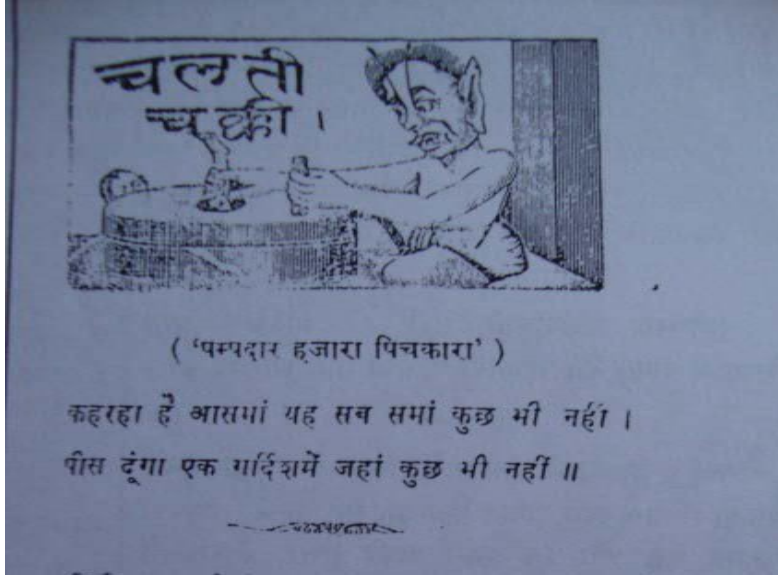 चलती
चक्की ।
( 'पम्पदार हजारा पिचकारा' )
कहरहा है आसमां यह सब समां कुछ भी नहीं ।
पीस दूंगा एक गर्दिशमें जहां कुछ भी नहीं ॥